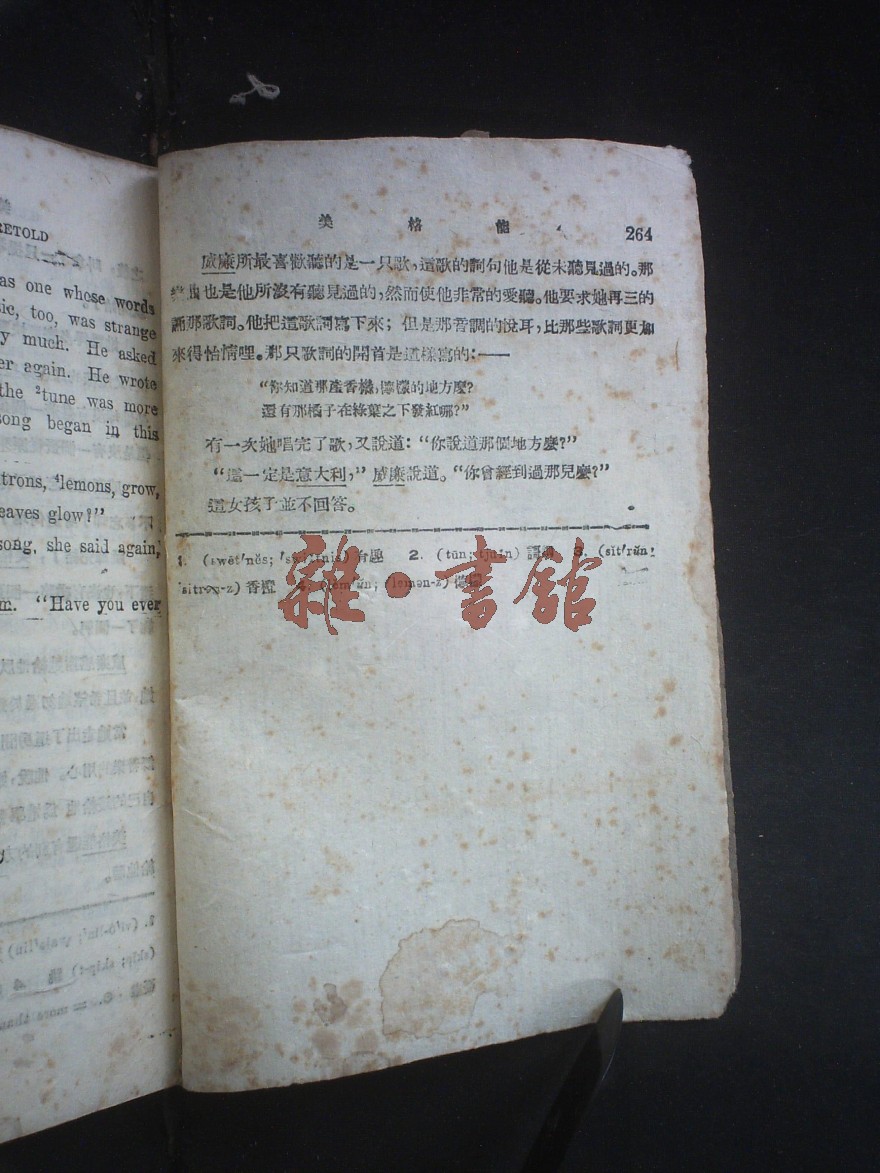 RETOLD
as one whose words
sic, too, was strange
y much. He asked
er again. He wrote
the ²tune was more
song began in this
trons, ⁴lemons, grow,
eaves glow?”
song, she said again,
m. “Have you ever
美格龍 264
威廉所最喜歡聽的是一只歌，這歌的詞句他是從未聽見過的。那
也是他所沒有聽見過的，然而使他非常的愛聽。他要求她再三的
誦那歌詞。他把這歌詞寫下來；但是那音調的悅耳，比那些歌詞更加
來得怡情哩。那只歌詞的開首是這樣寫的：——
“你知道那產香櫞，檸檬的地方麼？
還有那橘子在綠葉之下發紅哪？”
有一次她唱完了歌，又說道：“你說道那個地方麼？”
“這一定是意大利，”威廉說道。“你曾經到過那兒麼？”
這女孩子並不回答。
1. (swēt′nĕs; 2. (tūn; tju:n) 3. (sĭt′rŭn;
′sitrən-z) 香橙 (′lemən-z)
雜·書館